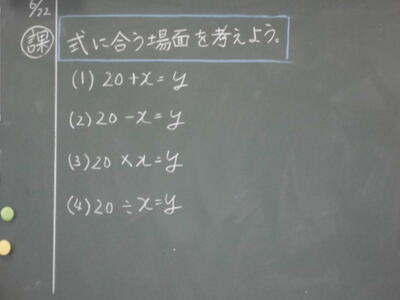 6/22
課 式に合う場面を考えよう。
(1) 20+x=y
(2) 20-x=y
(3) 20×x=y
(4) 20÷x=y